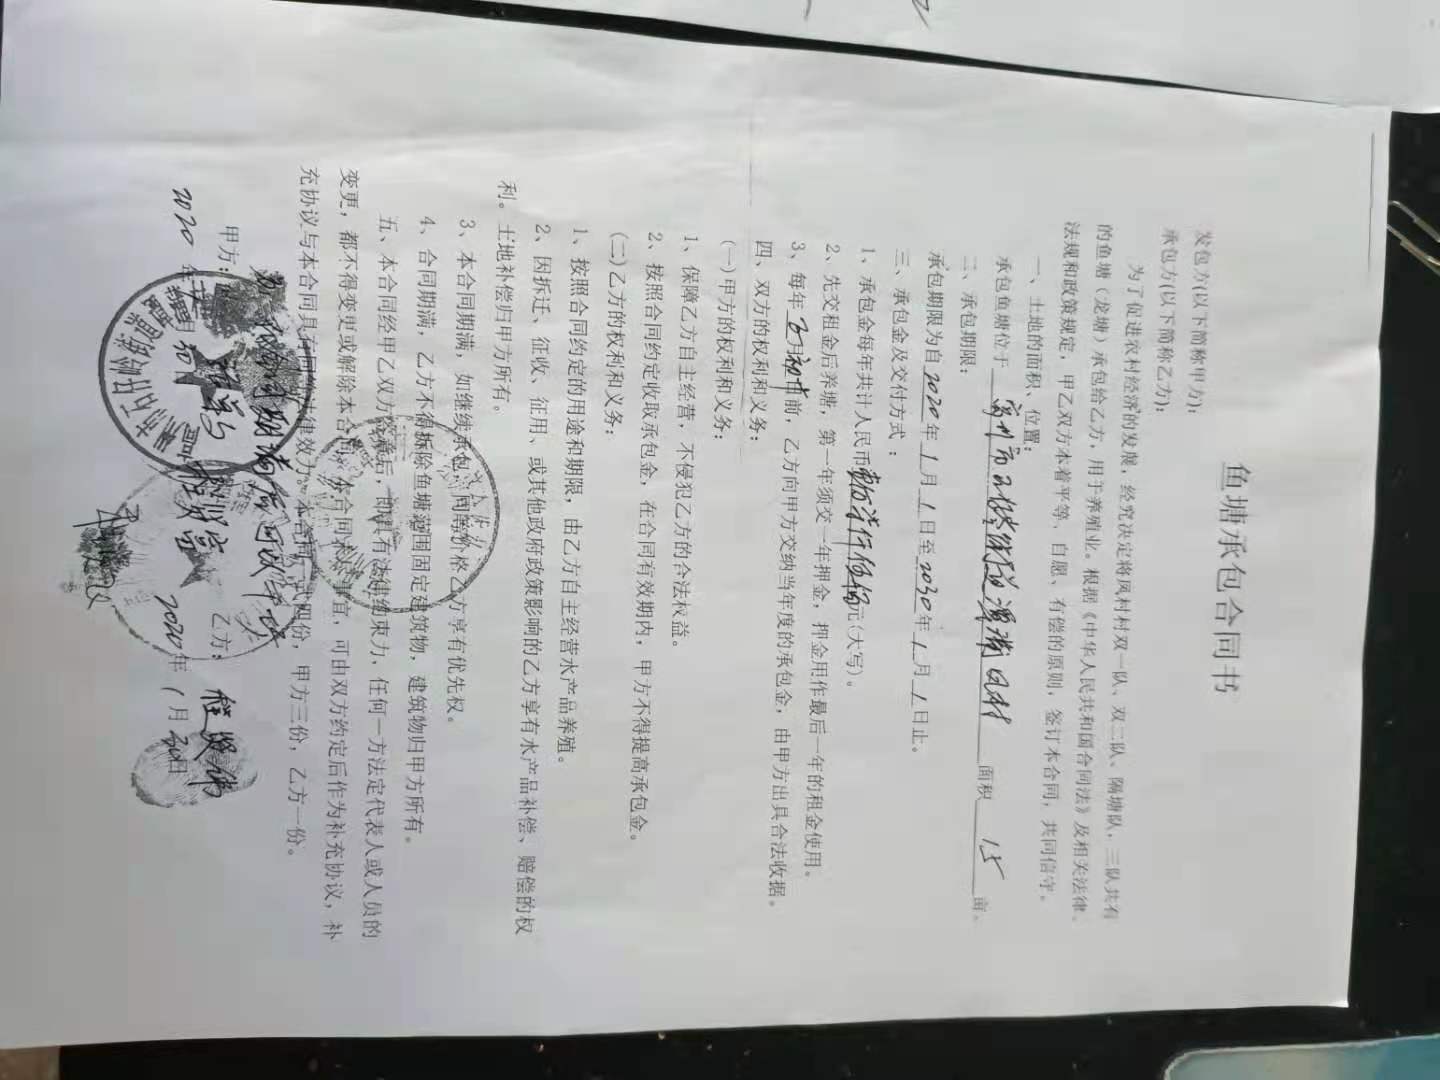 鱼塘承包合同书
发包方(以下简称甲方)：
承包方(以下简称乙方)：
为了促进农村经济的发展，经究决定将凤村村双一队、双二队、隔塘队，三队共有
的鱼塘（龙塘）承包给乙方，用于养殖业。根据《中华人民共和国合同法》及相关法律、
法规和政策规定，甲乙双方本着平等、自愿、有偿的原则，签订本合同，共同信守。
一、土地的面积、位置：
承包鱼塘位于 市石 村 面积 15 亩。
二、承包期限：
承包期限为自2020年1月1日至2030年1月1日止。
三、承包金及交付方式：
1、承包金每年共计人民币 元(大写)。
2、先交租金后养塘，第一年须交一年押金，押金用作最后一年的租金使用。
3、每年 前，乙方向甲方交纳当年度的承包金，由甲方出具合法收据。
四、双方的权利和义务：
(一)甲方的权利和义务：
1、保障乙方自主经营，不侵犯乙方的合法权益。
2、按照合同约定收取承包金，在合同有效期内，甲方不得提高承包金。
(二)乙方的权利和义务：
1、按照合同约定的用途和期限，由乙方自主经营水产品养殖。
2、因拆迁、征收、征用、或其他政府政策影响的乙方享有水产品补偿、赔偿的权
利。土地补偿归甲方所有。
3、本合同期满，如继续承包，同等价格乙方享有优先权。
4、合同期满，乙方不得拆除鱼塘范围固定建筑物，建筑物归甲方所有。
五、本合同经甲乙双方签章后，即具有法律约束力，任何一方法定代表人或人员的
变更，都不得变更或解除本合同。本合同未尽事宜，可由双方约定后作为补充协议，补
充协议与本合同具有同等法律效力。本合同一式四份，甲方三份，乙方一份。
甲方： 乙方：
2020年 月 2020年1月 日